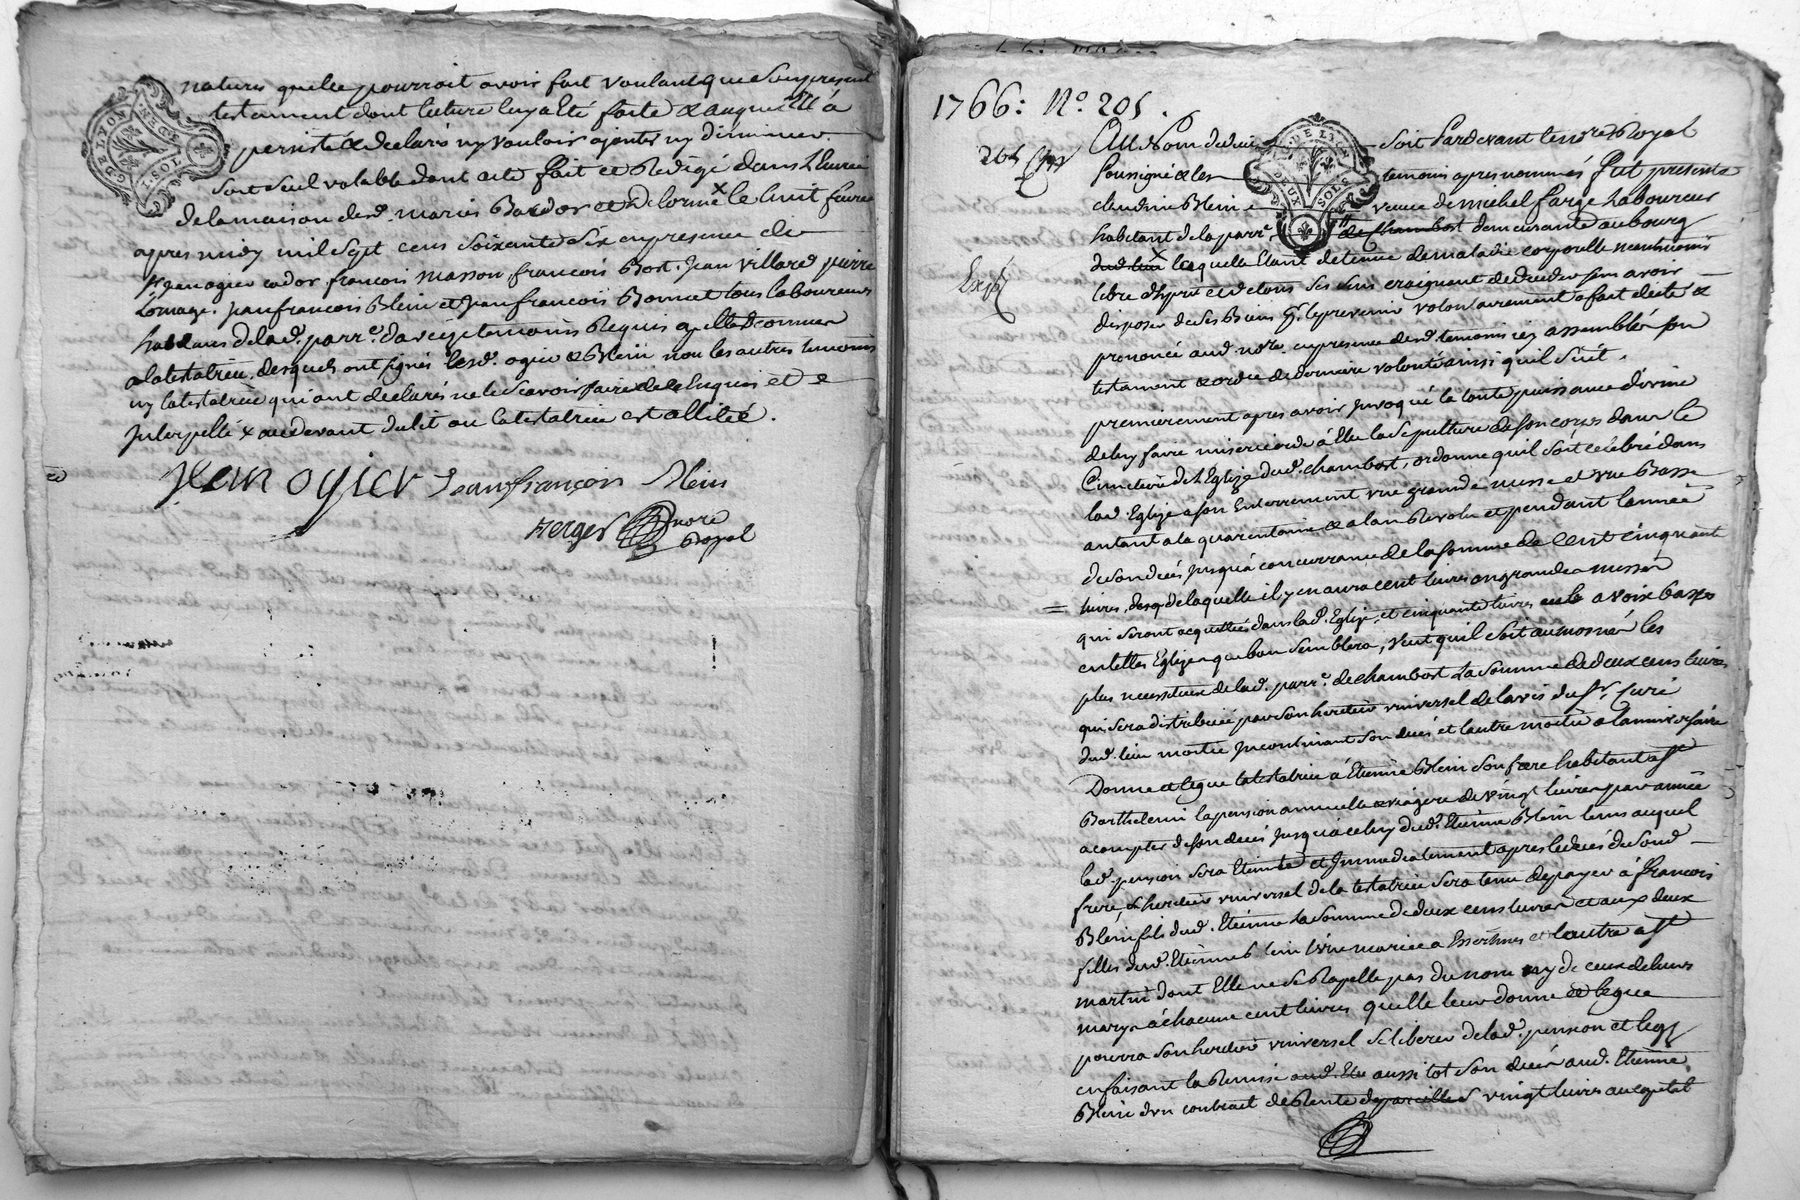 natures quelle pourroit avoir fait voulant que son present
testament dont lecture luy a Eté faite & auquel Ell à
persisté & declaré ny vouloir ajouter ny diminuer
soit seul valable dont acte fait et Redigé dans
de la maison de sd. maries Bador et delorme x le huit
apres midy mil sept cens soixante six en presence de
Jean ogier cador francois masson, francois Bost, Jean villard pierre
Lomage, Jean francois Blein et Jean francois Bonnet tous laboureurs
habitans de lad. parr.e d'aveyze temoins Requis apellés
a la testatrice, desquels ont signés lesd. ogier & Blein non les autres temoins
ny la testatrice qui ont declarés ne le scavoir faire de ce Enquis et
Interpellé x au devant dulit ou la testatrice est allitée.
Jean ogier Jean françois Blein
nore
Royal
1766: No. 205.
GDE LYON
G.DE LYON
DEUX SOLS
Au Nom de dieu soit Pardevant le nore Royal
soussigné & les temoins apres nommés fut presente
claudine Blein veuve de michel farge Laboureur
habitant de la parr.e de chambost demeurante au bourg
dud. lieu x laquelle Etant detenue de maladie corporelle neantmoins
libre d'esprit et de tous ses sens craignent de deceder sans avoir
disposer de ses Biens p.r le prevenir volontairement a fait dicté &
prononcé aud. nore. en presence desd. temoins icy assemblés son
testament & ordre de derniere volonté ainsi quil suit.
premierement apres avoir Invoqué la toute puissance divine
de luy faire misericorde à Elle la sepulture de son corps dans le
Cimetiere de l'Eglize dud. chambost, ordonne quil soit célébré dans
lad. Eglize a son Enterrement une grande messe et une Basse
autant a la quarentaine & a lan Revolu et pendant l'année
de son decés Jusqu'a concurrance de la somme de cent cinquante
livres, de laquelle il y en aura cent livres en grandes messes
qui seront acquittées dans lad. Eglize, et cinquante livres a voix basse
en telles Eglizes que bon semblera, veut quil soit aumosné les
plus necessiteux de lad. parr.e de chambost La somme de deux cens livres
qui sera distribuée par son heritier universel de lavis du sr. curé
dud. lieu moitié Incontinant son décès et lautre moitié a lanniversaire
Donne et legue la testatrice a Etienne Blein son frere habitant a st
Barthelemi la pension annuelle & viagere de vingt livres par année
a compter de son decés Jusqu'a celuy dud. Etienne Blein tems auquel
lad. pension sera Eteinte et Immediatement apres le decés de sond.
frere, L'heritier universel de la testatrice sera tenu de payer à francois
Blein fils dud. Etienne La somme de deux cens livres et aux deux
filles dud. Etienne Blein l'une mariée a Essertines et lautre a st
martin dont Elle ne se Rapelle pas du nom ny de ceux de leurs
marys à chacune cent livres quelle leur donne & legue
pourra son heritier universel se liberer de lad. pension et legs
en faisant la Remise aussi tot son decés aud. Etienne
Blein d'un contrat de Rente de vingt livres au capital